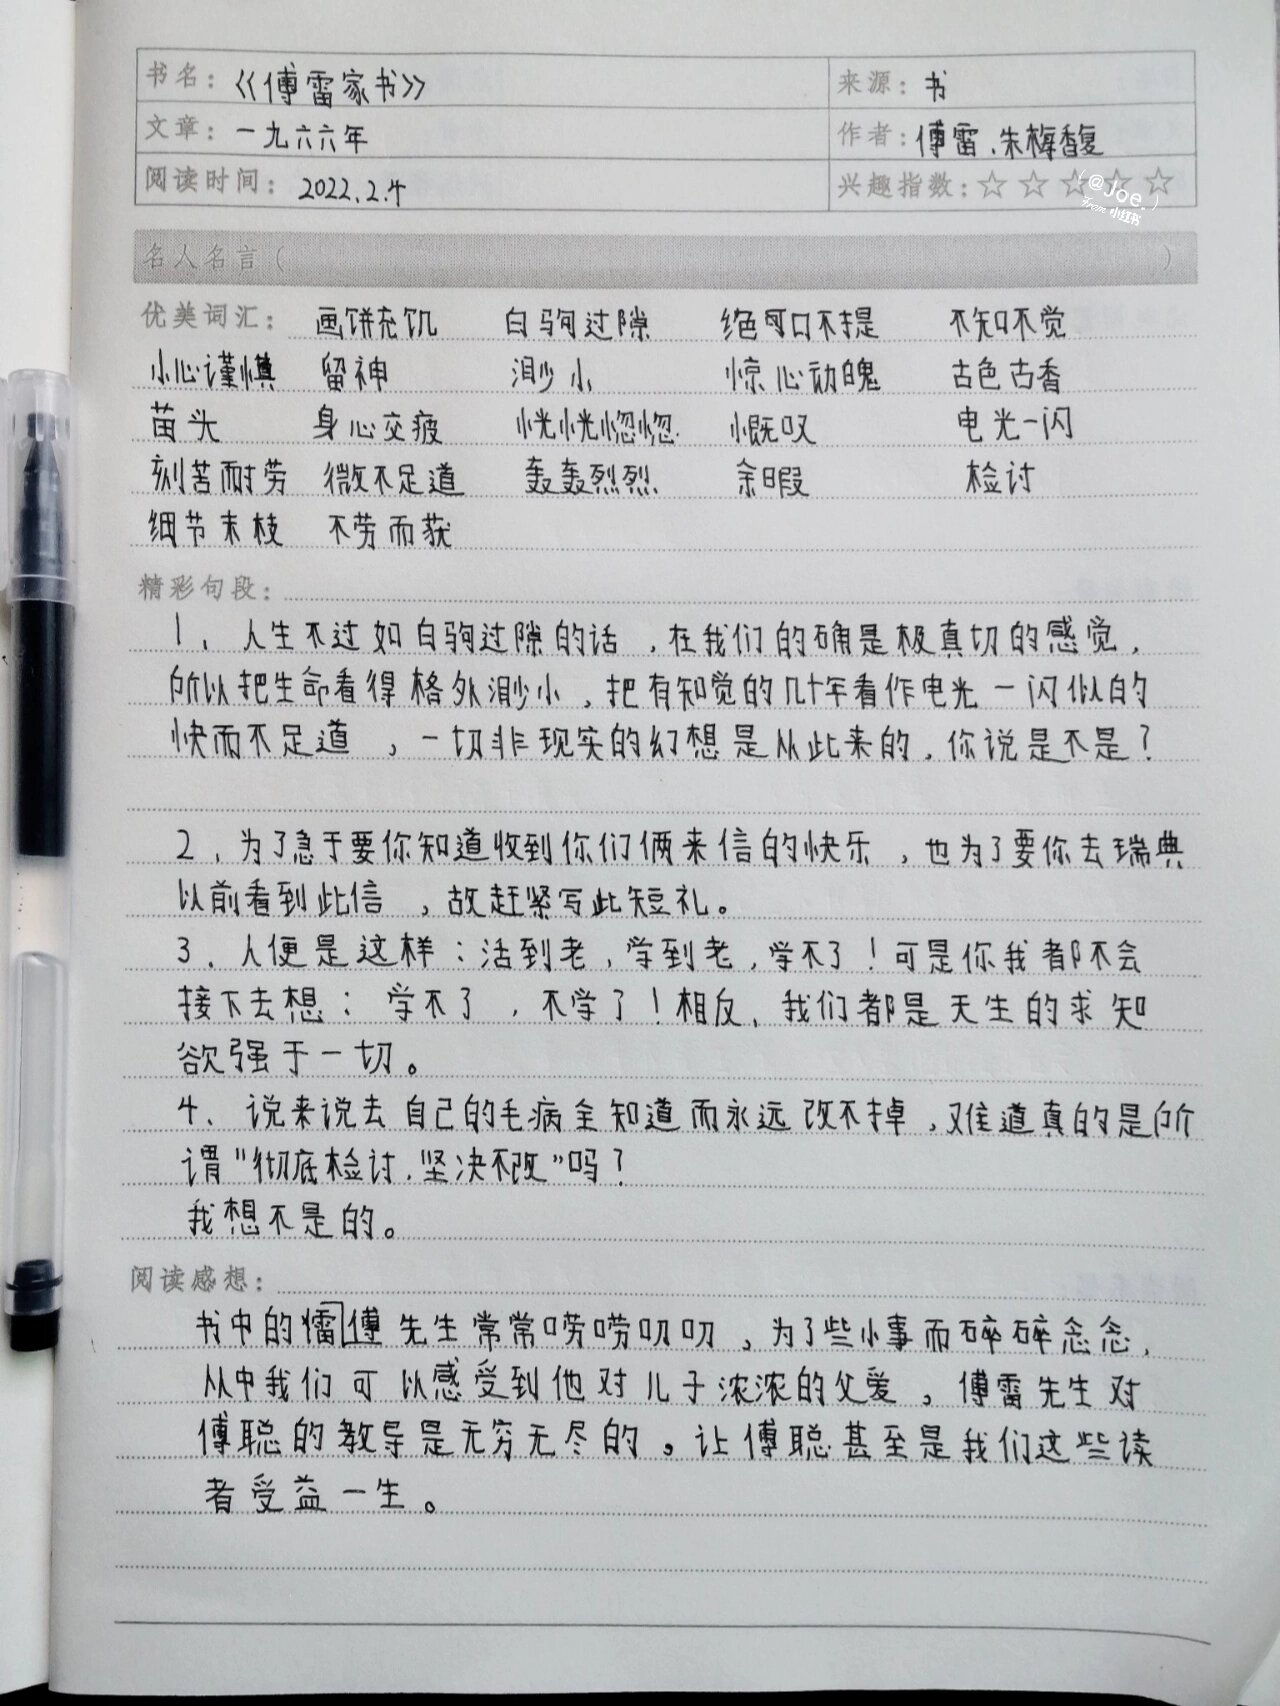 书名：《傅雷家书》 来源：书
文章：一九六六年 作者：傅雷、朱梅馥
阅读时间：2022.2.4 兴趣指数：☆☆☆☆☆
(@Joe.)
From 小红书
名人名言（ ）
优美词汇： 画饼充饥 白驹过隙 绝口不提 不知不觉
小心谨慎 留神 渺小 惊心动魄 古色古香
苗头 身心交疲 恍恍惚惚 慨叹 电光一闪
刻苦耐劳 微不足道 轰轰烈烈 余暇 检讨
细节末枝 不劳而获
精彩句段：
1、人生不过如白驹过隙的话，在我们的确是极真切的感觉，
所以把生命看得格外渺小，把有知觉的几十年看作电光一闪似的
快而不足道，一切非现实的幻想是从此来的，你说是不是？
2、为了急于要你知道收到你们俩来信的快乐，也为了要你去瑞典
以前看到此信，故赶紧写此短礼。
3、人便是这样：活到老，学到老，学不了！可是你我都不会
接下去想：学不了，不学了！相反，我们都是天生的求知
欲强于一切。
4、说来说去自己的毛病全知道而永远改不掉，难道真的是所
谓"彻底检讨，坚决不改"吗？
我想不是的。
阅读感想：
书中的傅先生常常唠唠叨叨，为了些小事而碎碎念念，
从中我们可以感受到他对儿子浓浓的父爱，傅雷先生对
傅聪的教导是无穷无尽的。让傅聪甚至是我们这些读
者受益一生。